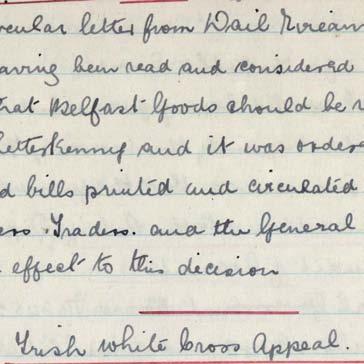 rcular letter from Dail Eireann
aving been read and considered
that Belfast Goods should be r
Letterkenny and it was ordere
d bills printed and circulated
ess Traders. and the General
effect to this decision
Irish White Cross Appeal.